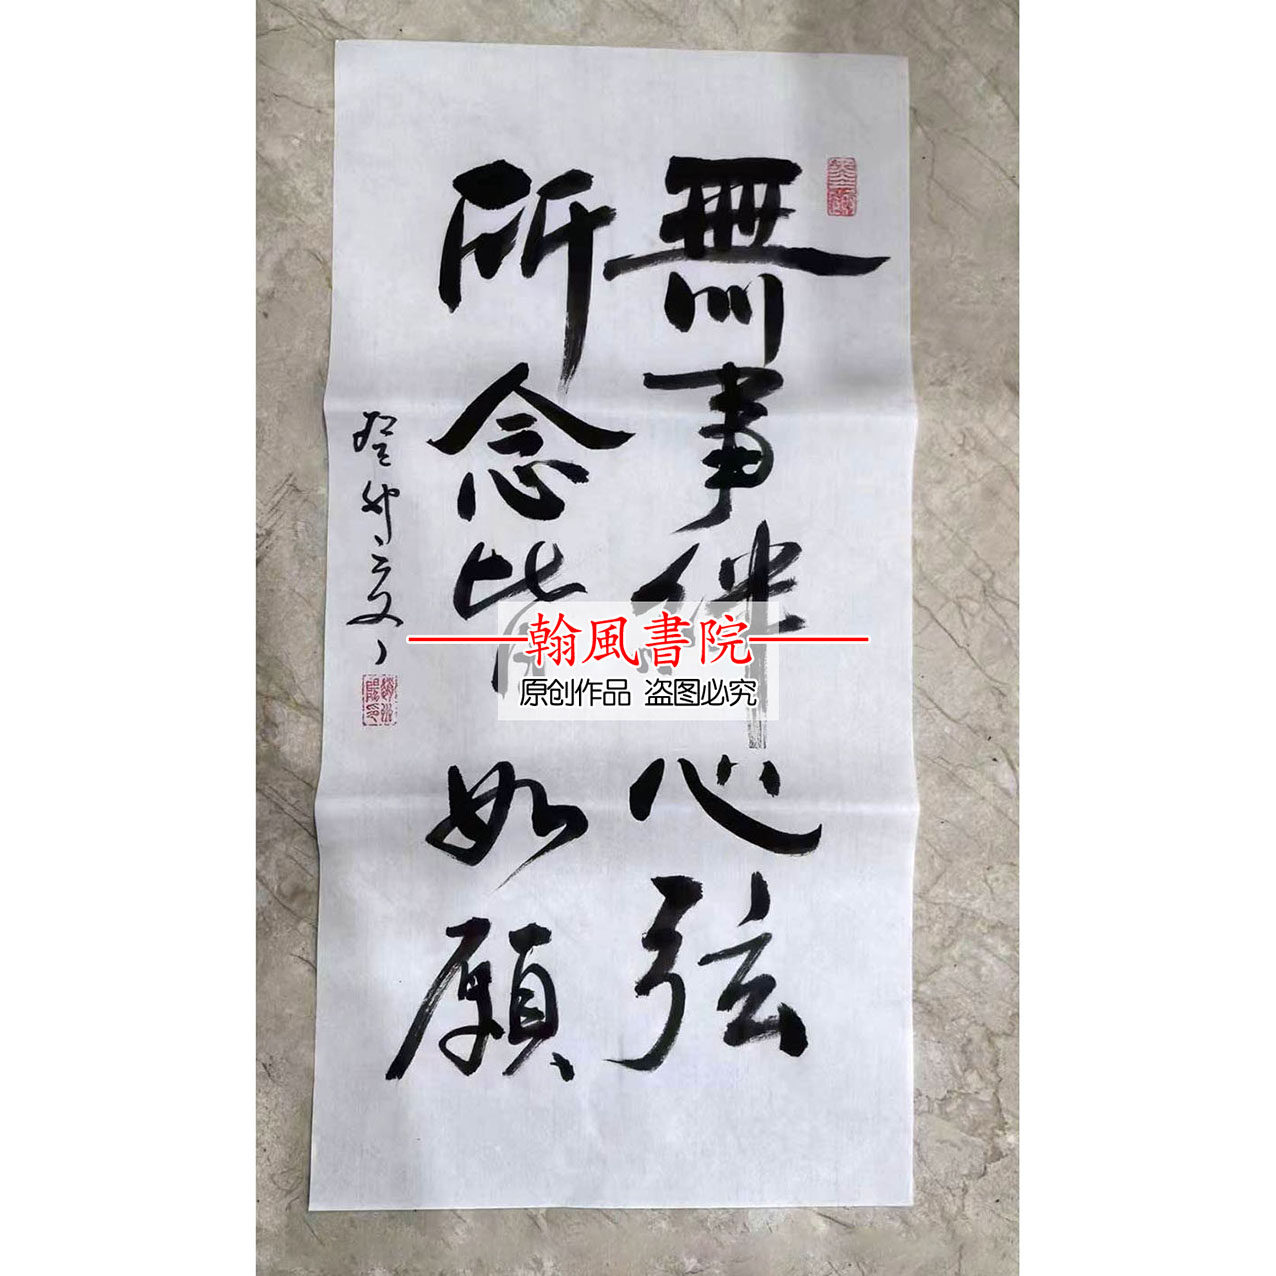 無事絆心弦
所念皆如願
癸卯之夏
翰風書院
原创作品 盗图必究